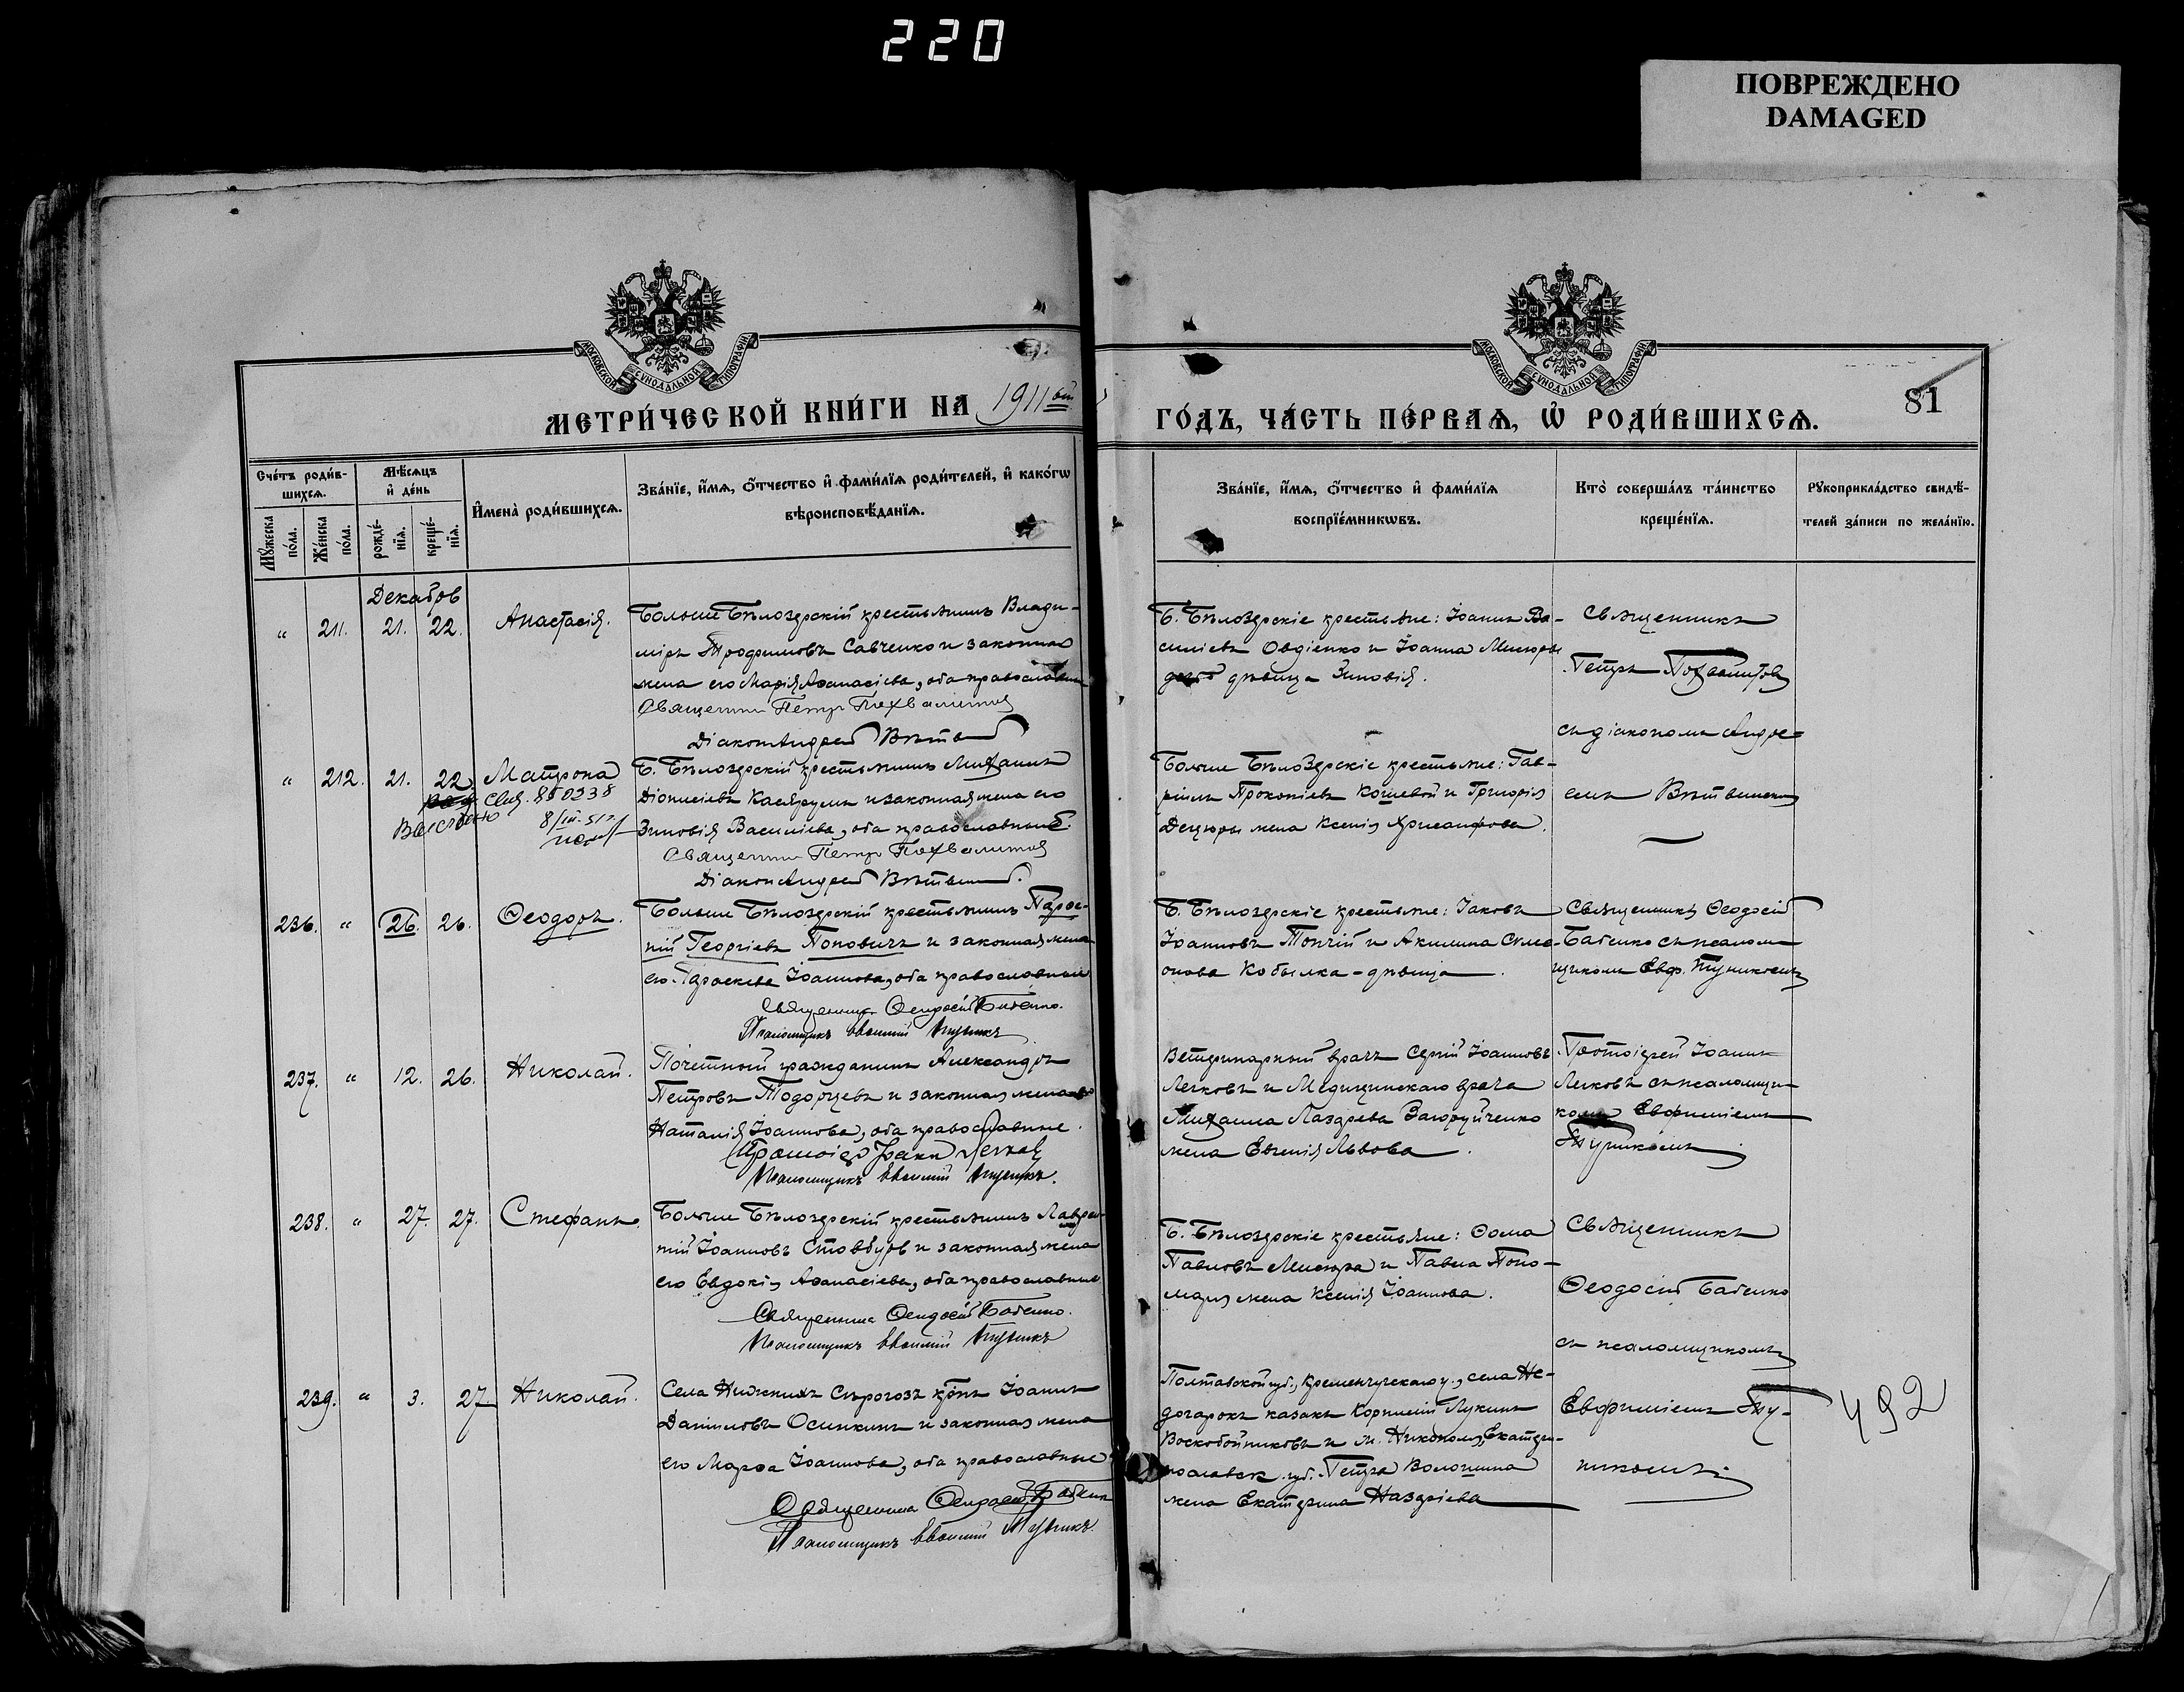 220
ПОВРЕЖДЕНО
DAMAGED
МОСКОВСКОЙ СѴНОДАЛЬНОЙ ТИПОГРАФІИ
МОСКОВСКОЙ СѴНОДАЛЬНОЙ ТИПОГРАФІИ
МЕТРИ́ЧЕСКОЙ КНИ́ГИ НА 1911ый
ГО́ДЪ, ЧА́СТЬ ПЕ́РВАѦ, Ѡ҆ РОДИ́ВШИХСѦ.
81
Сче́тъ роди́в-
шихсѧ.
Мѣ́сѧцъ
и҆ де́нь
Мꙋ́жеска
по́ла.
Же́нска
по́ла.
рожде́-
нїѧ.
креще́-
нїѧ.
И҆мена̀ роди́вшихсѧ.
Зва́нїе, и҆́мѧ, ѻ҆́тчество и҆ фами́лїѧ роди́телей, и҆ како́гѡ
вѣроисповѣ́данїѧ.
Зва́нїе, и҆́мѧ, ѻ҆́тчество и҆ фами́лїѧ
воспрїе́мникѡвъ.
Кто̀ соверша́лъ та́инство
креще́нїѧ.
Рꙋкоприкла́дство свидѣ́-
телей за́писи по жела́нїю.
Декабрь
" 211. 21. 22. Анастасія.
Больше Бѣлозерскій крестьянинъ Влади-
міръ Трофимовъ Савченко и законная
жена его Марія Аѳанасіева, оба православные
Священник Петр Похвалитов
Діакон Андрей
Б. Бѣлозерскіе крестьяне: Іоаннъ Ва-
силіевъ Овдіенко и Іоанна Мисюры
дочь дѣвица Зиновія.
Священникъ
Петръ Похвалитовъ
съ діакономъ Андре-
" 212. 21. 22. Матрона
Свид. 850238
8/III-51г.
Б. Бѣлозерскій крестьянинъ Михаилъ
Діонисіевъ и законная жена его
Зиновія Василіева, оба православные.
Священник Петр Похвалитов
Діакон Андрей
Больше Бѣлозерскіе крестьяне: Гав-
ріилъ Прокопіевъ Кошевой и Григорія
Децюры жена Ксенія Хрисанфова.
емъ
236. " 26. 26. Ѳеодоръ.
Больше Бѣлозерскій крестьянинъ Парѳе-
ній Георгіевъ Поповичъ и законная жена
его Параскева Іоаннова, оба православные
Священникъ Ѳеодосій Бабенко.
Псаломщикъ Евѳимій
Б. Бѣлозерскіе крестьяне: Іаковъ
Іоанновъ Топчій и Акилина Симе-
онова Кобылка - дѣвица.
Священникъ Ѳеодосій
Бабенко съ псалом-
щикомъ Евф.
237. " 12. 26. Николай.
Почетный гражданинъ Александръ
Петровъ Тодорцевъ и законная жена его
Наталія Іоаннова, оба православные.
Протоіер Іоанн Легков
Псаломщикъ Евѳимій
Ветеринарный врачъ Сергій Іоанновъ
Легковъ и Медицинскаго врача
Михаила Лазарева Загоруйченко
жена Евгенія Львова.
Протоіерей Іоаннъ
Легковъ съ псаломщи-
комъ Евфиміемъ
238. " 27. 27. Стефанъ.
Больше Бѣлозерскій крестьянинъ Лаврен-
тій Іоанновъ Стовбуръ и законная жена
его Евдокія Аѳанасіева, оба православные
Священникъ Ѳеодосій Бабенко.
Псаломщикъ Евѳимій
Б. Бѣлозерскіе крестьяне: Ѳома
Павловъ Мисюра и Павла Поно-
маря жена Ксенія Іоаннова.
Священникъ
Ѳеодосій Бабенко
съ псаломщикомъ
239. " 3. 27. Николай.
Села Нижнихъ Сѣрогозъ кр-нъ Іоаннъ
Даніиловъ Осипкинъ и законная жена
его Марѳа Іоаннова, оба православные
Священникъ Ѳеодосій Бабенко
Псаломщикъ Евѳимій
Полтавской губ., Кременчугскаго у., села Не-
догарокъ казакъ Корнилій Лукинъ
Воскобойниковъ и м. Никополя, Екатери-
нославск. губ. Петра Волошина
жена Екатерина Назаріева
Евфиміемъ
492